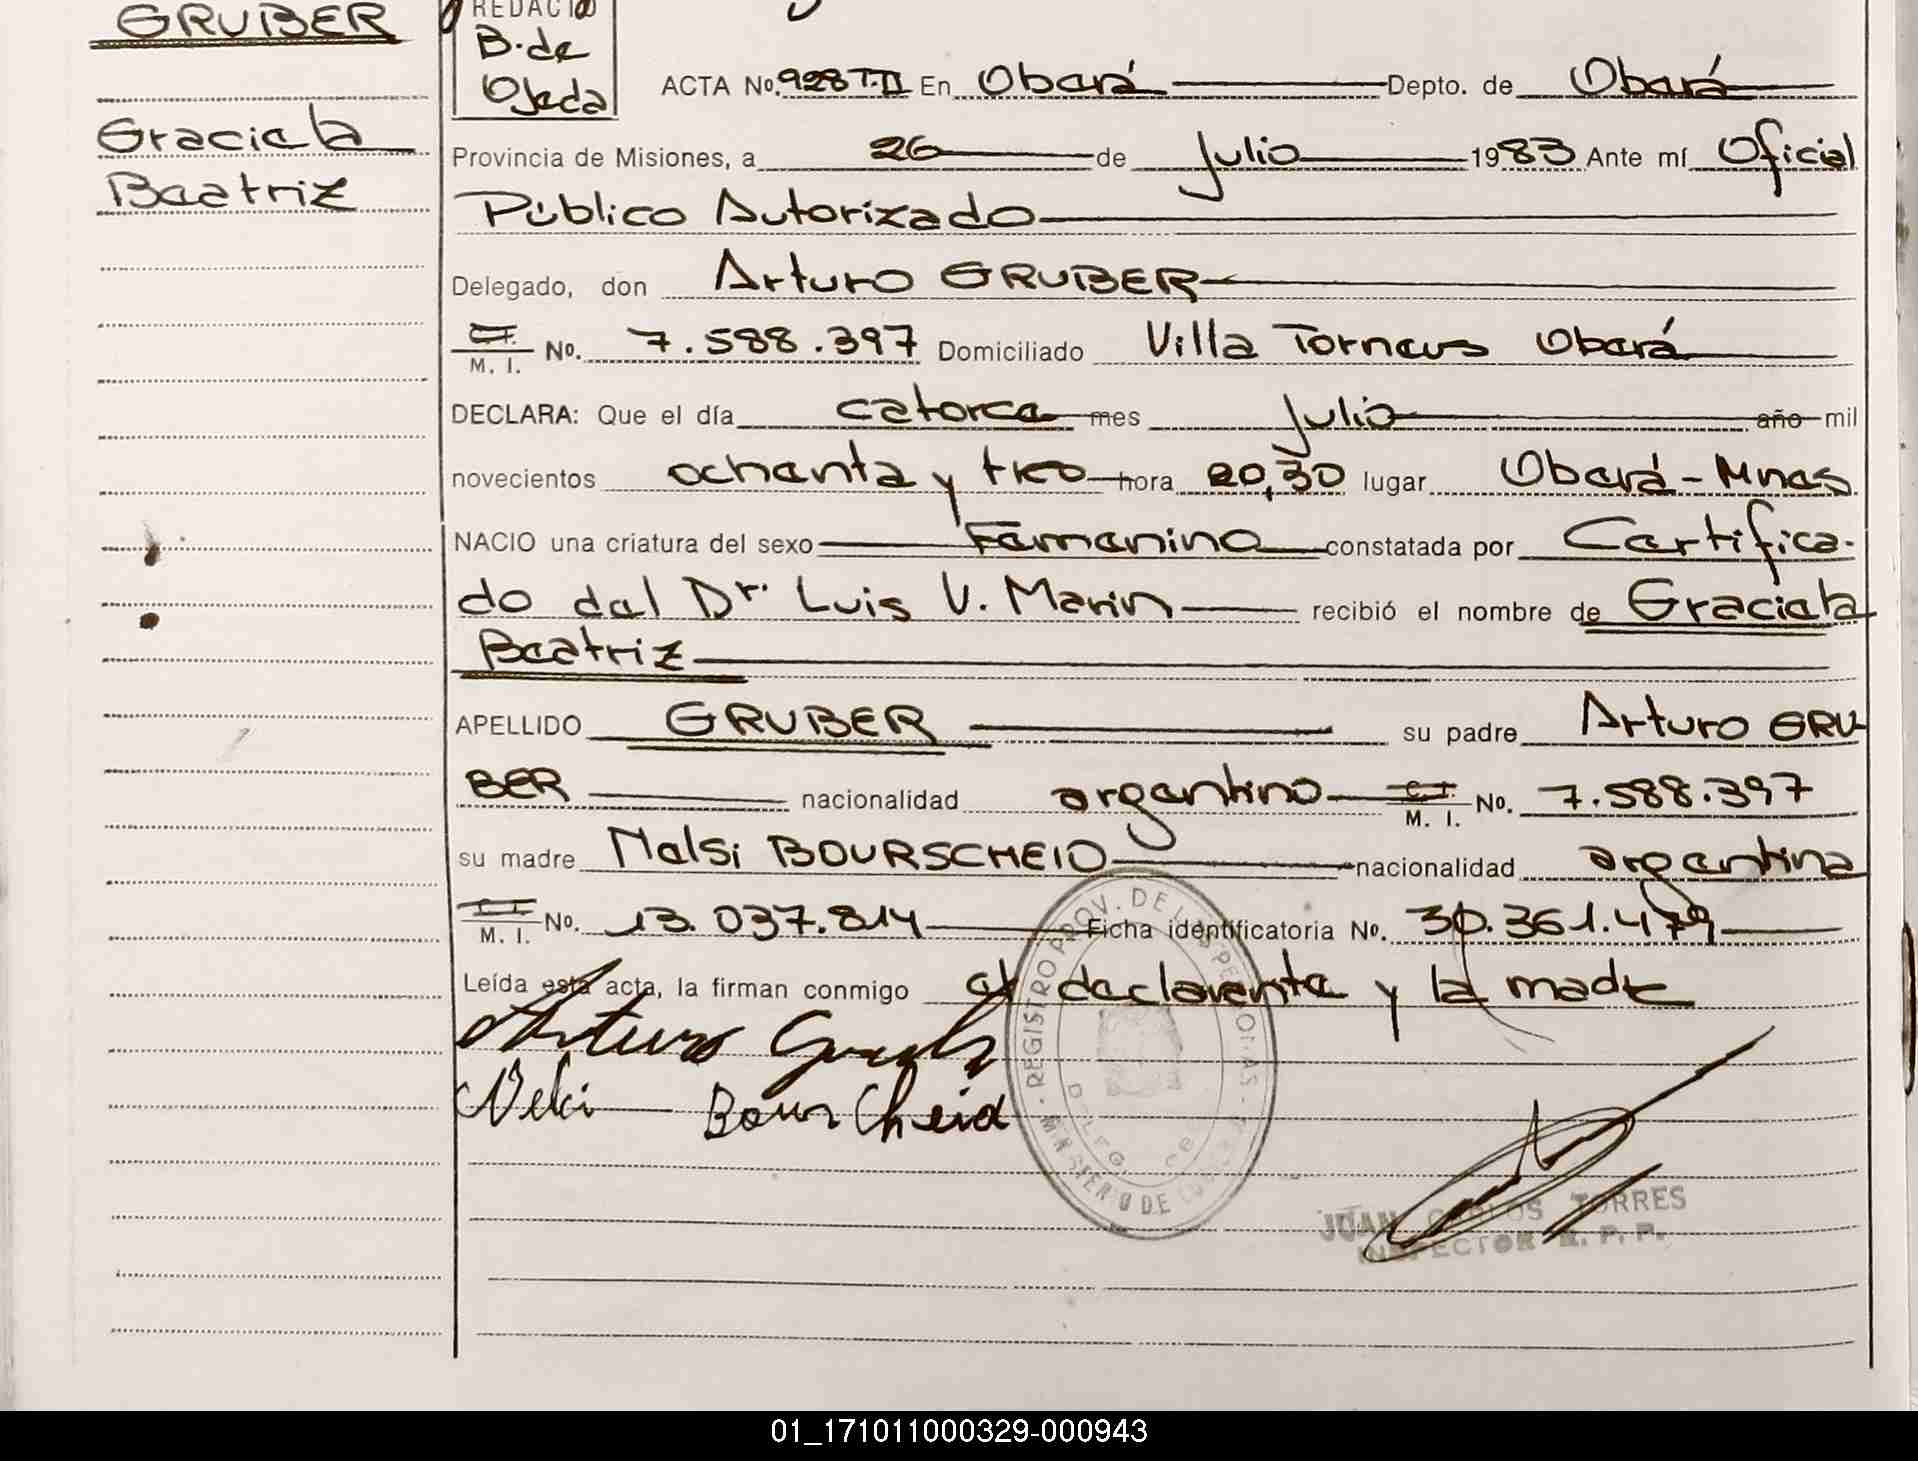 GRUBER
Graciela
Beatriz
REDACTO
B. de
Ojeda
ACTA No. 928 T.II En Oberá Depto. de Oberá
Provincia de Misiones, a 26 de Julio 1983 Ante mí Oficial
Público Autorizado
Delegado, don Arturo GRUBER
C.I. M. I. No. 7.588.397 Domiciliado Villa Torneus Oberá
DECLARA: Que el día catorce mes Julio año mil
novecientos ochenta y tres hora 20,30 lugar Oberá - Mnes
NACIO una criatura del sexo Femenino constatada por Certifica-
do del Dr. Luis V. Marin recibió el nombre de Graciela
Beatriz
APELLIDO GRUBER su padre Arturo GRU-
BER nacionalidad argentino C.I. M. I. No. 7.588.397
su madre Nelsi BOURSCHEID nacionalidad argentina
C.I. M. I. No. 13.037.814 Ficha identificatoria No. 30.361.479
Leída esta acta, la firman conmigo el declarante y la madre
Arturo
Bourscheid
REGISTRO PROV. DE LAS PERSONAS
MINISTERIO DE
JUAN CARLOS TORRES
INSPECTOR R. P. P.
01_171011000329-000943